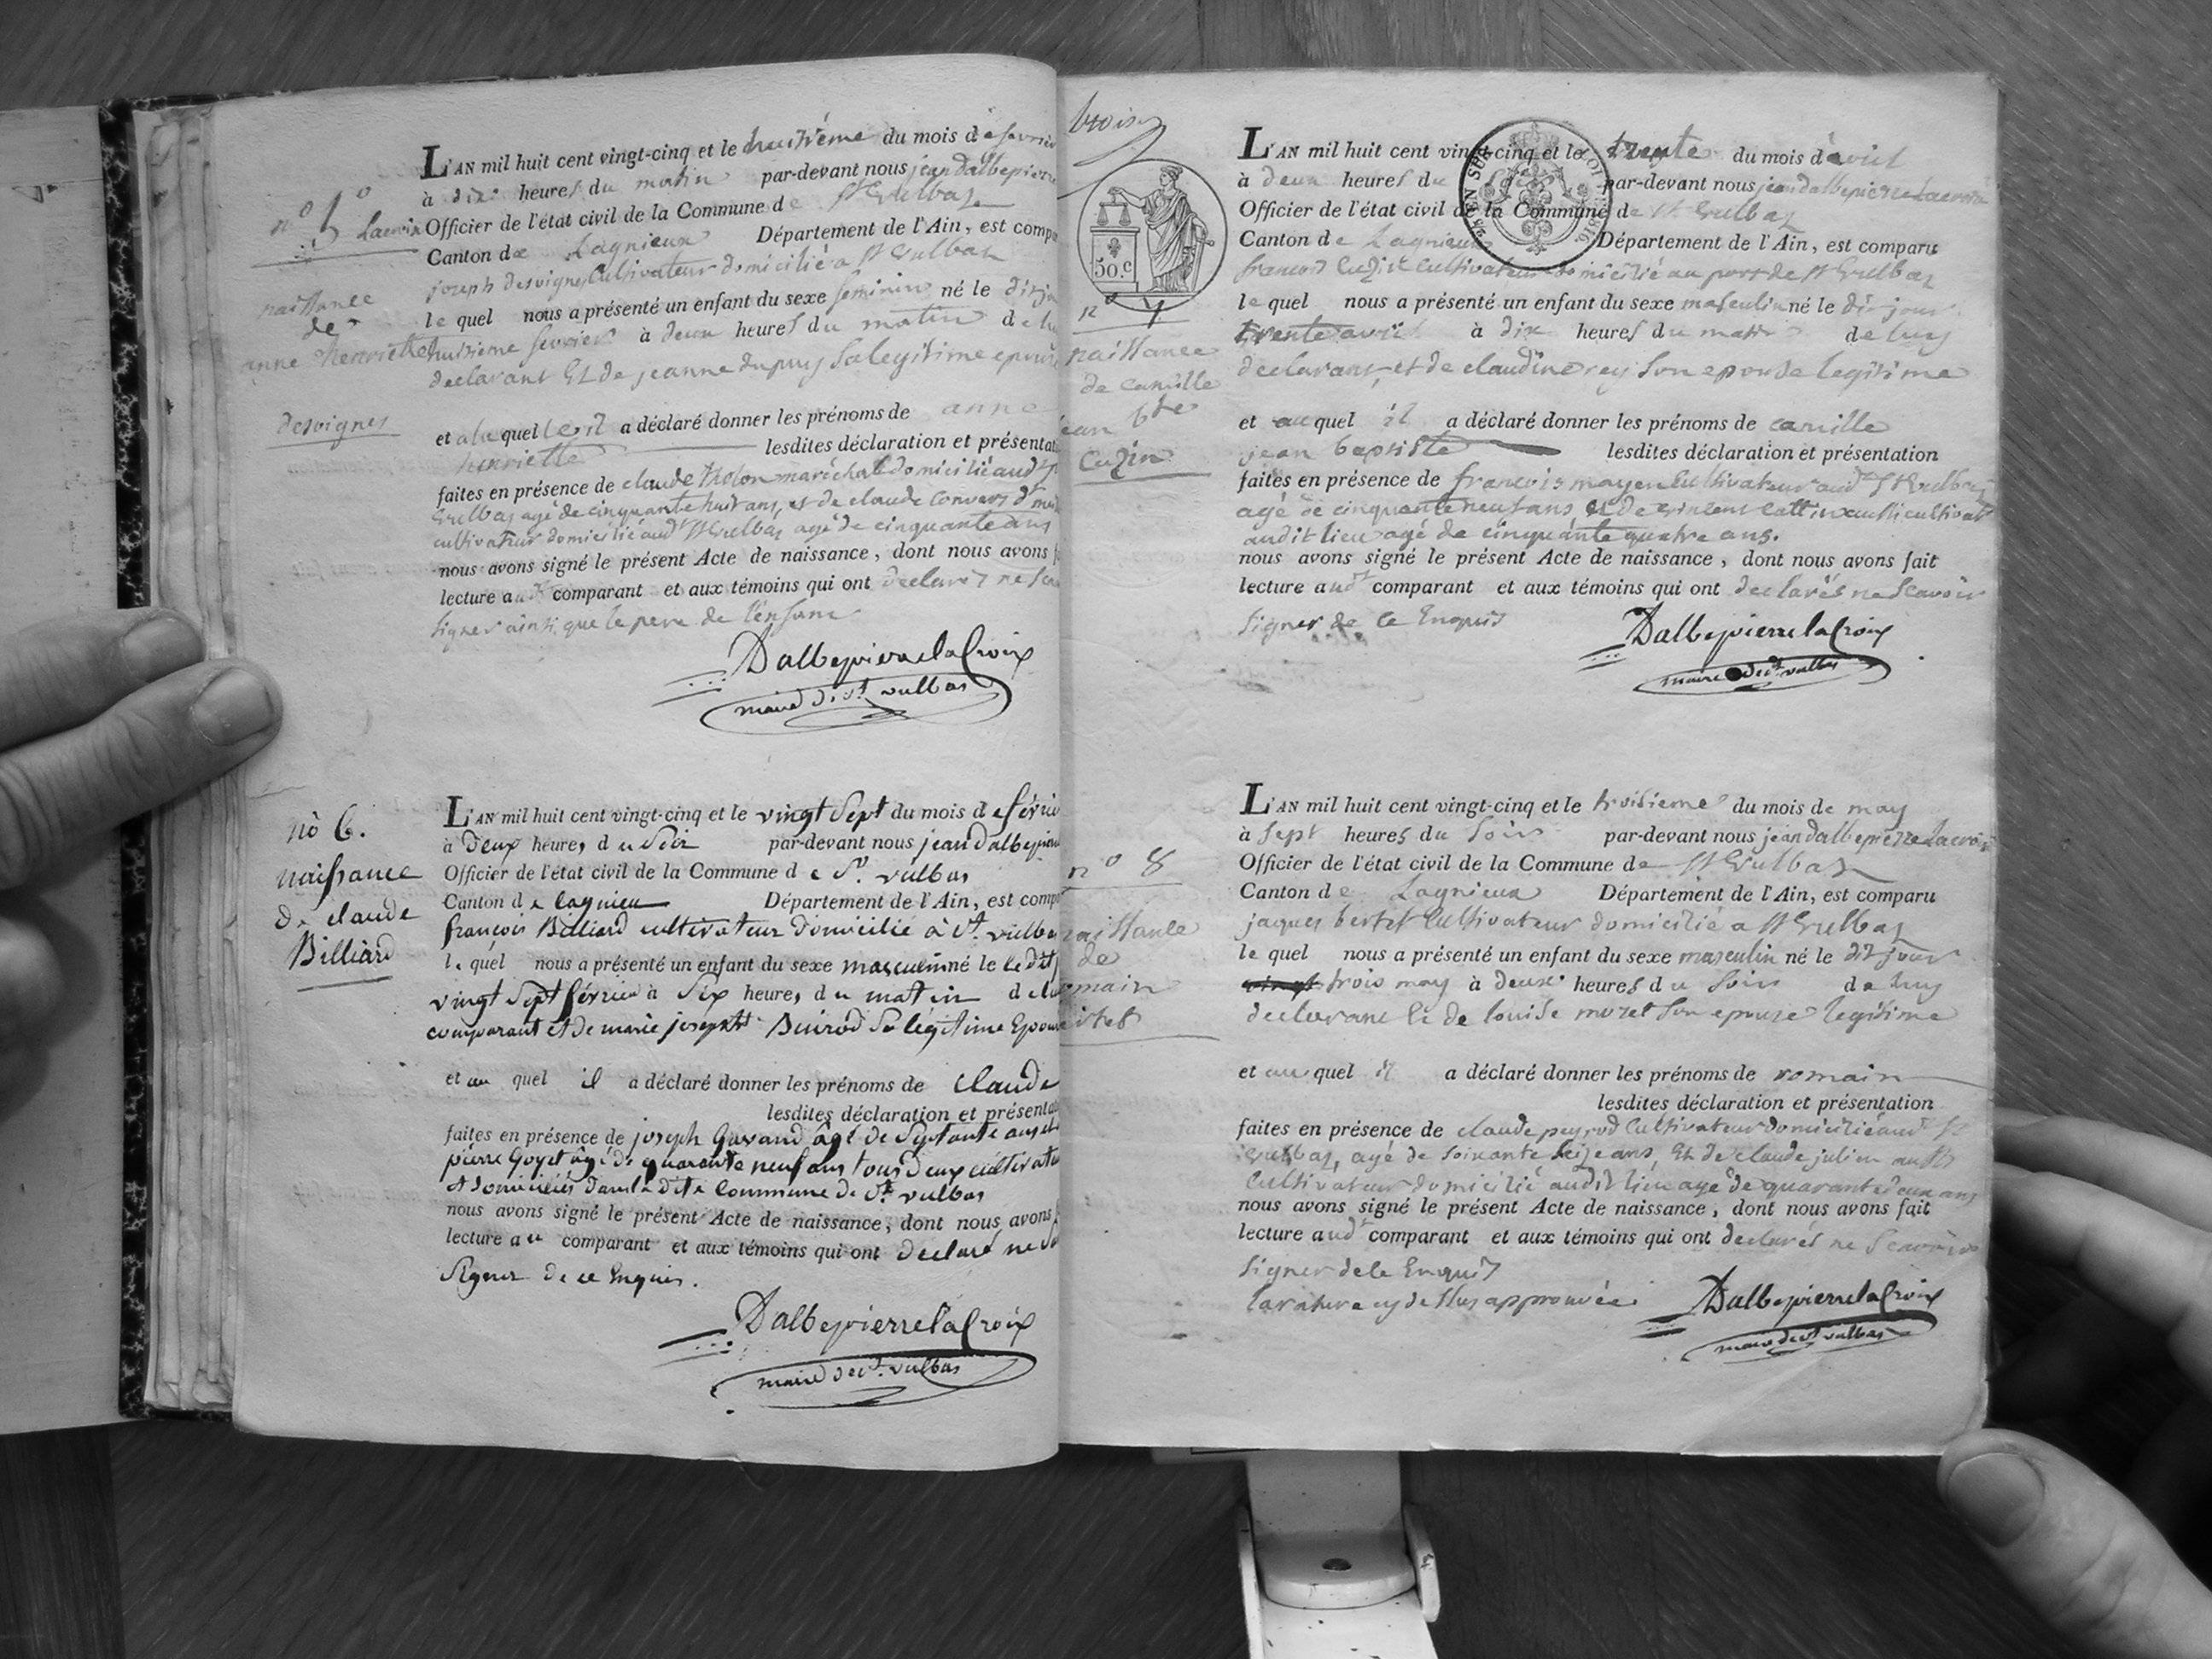 n° 5
naissance
de
anne henriette
desvignes
L'AN mil huit cent vingt-cinq et le huitième du mois de fevrier
à dix heures du matin par-devant nous jean dalbepierre
Lacroix Officier de l'état civil de la Commune de St Vulbas
Canton de Lagnieux Département de l'Ain, est compa
joseph desvignes Cultivateur domicilié a St Vulbas
le quel nous a présenté un enfant du sexe feminin né le dit jou
huitieme fevrier à deux heures du matin de lui
declarant Et de jeanne dupuy Sa legitime epouse
et a la quelle il a déclaré donner les prénoms de anne
henriette lesdites déclaration et présentati
faites en présence de claude tholon maréchal domicilié audt St
Vulbas agé de cinquante huit ans, et de claude Convers d'
cultivateur domicilié audt St Vulbas agé de cinquante ans
nous avons signé le présent Acte de naissance, dont nous avons f
lecture audt comparant et aux témoins qui ont declarés ne Sca
Signer ainsi que le pere de l'enfant
Dalbepierre la Croix
maire de st. vulbas
nò 6.
naissance
de claude
Billiard
L'AN mil huit cent vingt-cinq et le vingt Sept du mois de févrie
à deux heures du Soir par-devant nous jean Dalbepierre
Officier de l'état civil de la Commune de St. vulbas
Canton de lagnieu Département de l'Ain, est compa
françois Billiard cultivateur domicilié à St. vulbas
le quel nous a présenté un enfant du sexe masculin né le le dit j
vingt Sept février à Six heures du matin de lui
comparant et de marie josephte Buirod Sa légitime Epouse
et au quel il a déclaré donner les prénoms de claude
lesdites déclaration et présentat
faites en présence de joseph Gavand âgé de Septante ans et
pierre Goyet âgé de quarante neuf ans tous deux cultivate
et domiciliés dans la dite Commune de St. vulbas
nous avons signé le présent Acte de naissance, dont nous avons f
lecture au comparant et aux témoins qui ont declaré ne Sa
Signer de ce Enquis.
Dalbepierre la Croix
maire de st. vulbas
trois
50.c
n° 7
naissance
de camille
jean bte
Cuzin
L'AN mil huit cent vingt-cinq et le trente du mois d'avril
à deux heures du Soir par-devant nous jean dalbepierre Lacroix
Officier de l'état civil de la Commune de St Vulbas
Canton de Lagnieux Département de l'Ain, est comparu
francois Cuzin Cultivateur domicilié au port de St Vulbas
le quel nous a présenté un enfant du sexe masculin né le dit jour
trente avril à dix heures du matin de luy
declarant, et de claudine rey Son epouse legitime
et au quel il a déclaré donner les prénoms de camille
jean baptiste lesdites déclaration et présentation
faites en présence de francois mayen Cultivateur audt St Vulbas
agé de cinquante neuf ans et de vincent cattin aussi cultivat
audit lieu agé de cinquante quatre ans.
nous avons signé le présent Acte de naissance, dont nous avons fait
lecture audt comparant et aux témoins qui ont declarés ne Scavoir
Signer de ce Enquis
Dalbepierre la Croix
maire de st. vulbas
n° 8
naissance
de
romain
bertet
L'AN mil huit cent vingt-cinq et le troisieme du mois de may
à Sept heures du Soir par-devant nous jean dalbepierre Lacroix
Officier de l'état civil de la Commune de St Vulbas
Canton de Lagnieux Département de l'Ain, est comparu
jaques bertet Cultivateur domicilié a St Vulbas
le quel nous a présenté un enfant du sexe masculin né le dit jour
vingt trois may à deux heures du Soir de luy
declarant Et de louise morel Son epouse legitime
et au quel il a déclaré donner les prénoms de romain
lesdites déclaration et présentation
faites en présence de claude peyrod Cultivateur domicilié audt St
Vulbas, agé de Soixante Seize ans, Et de claude julien aussi
Cultivateur domicilié audit lieu agé de quarante deux ans
nous avons signé le présent Acte de naissance, dont nous avons fait
lecture audt comparant et aux témoins qui ont declarés ne Scavoir
Signer de ce Enquis
la rature cy dessus approuvée
Dalbepierre la Croix
maire de st. vulbas